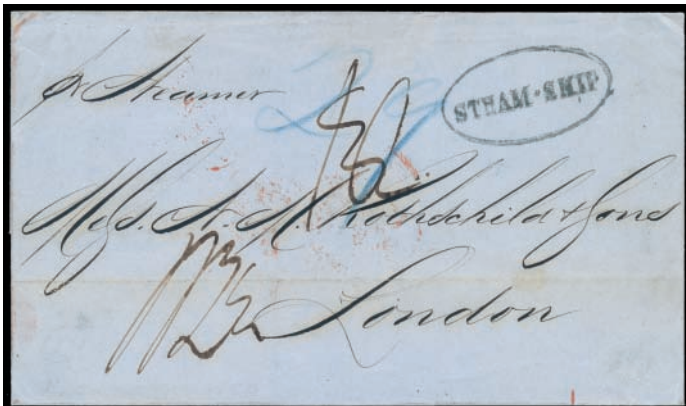 pr Steamer
STEAM-SHIP
Messrs. N. M. Rothschild & Sons
London